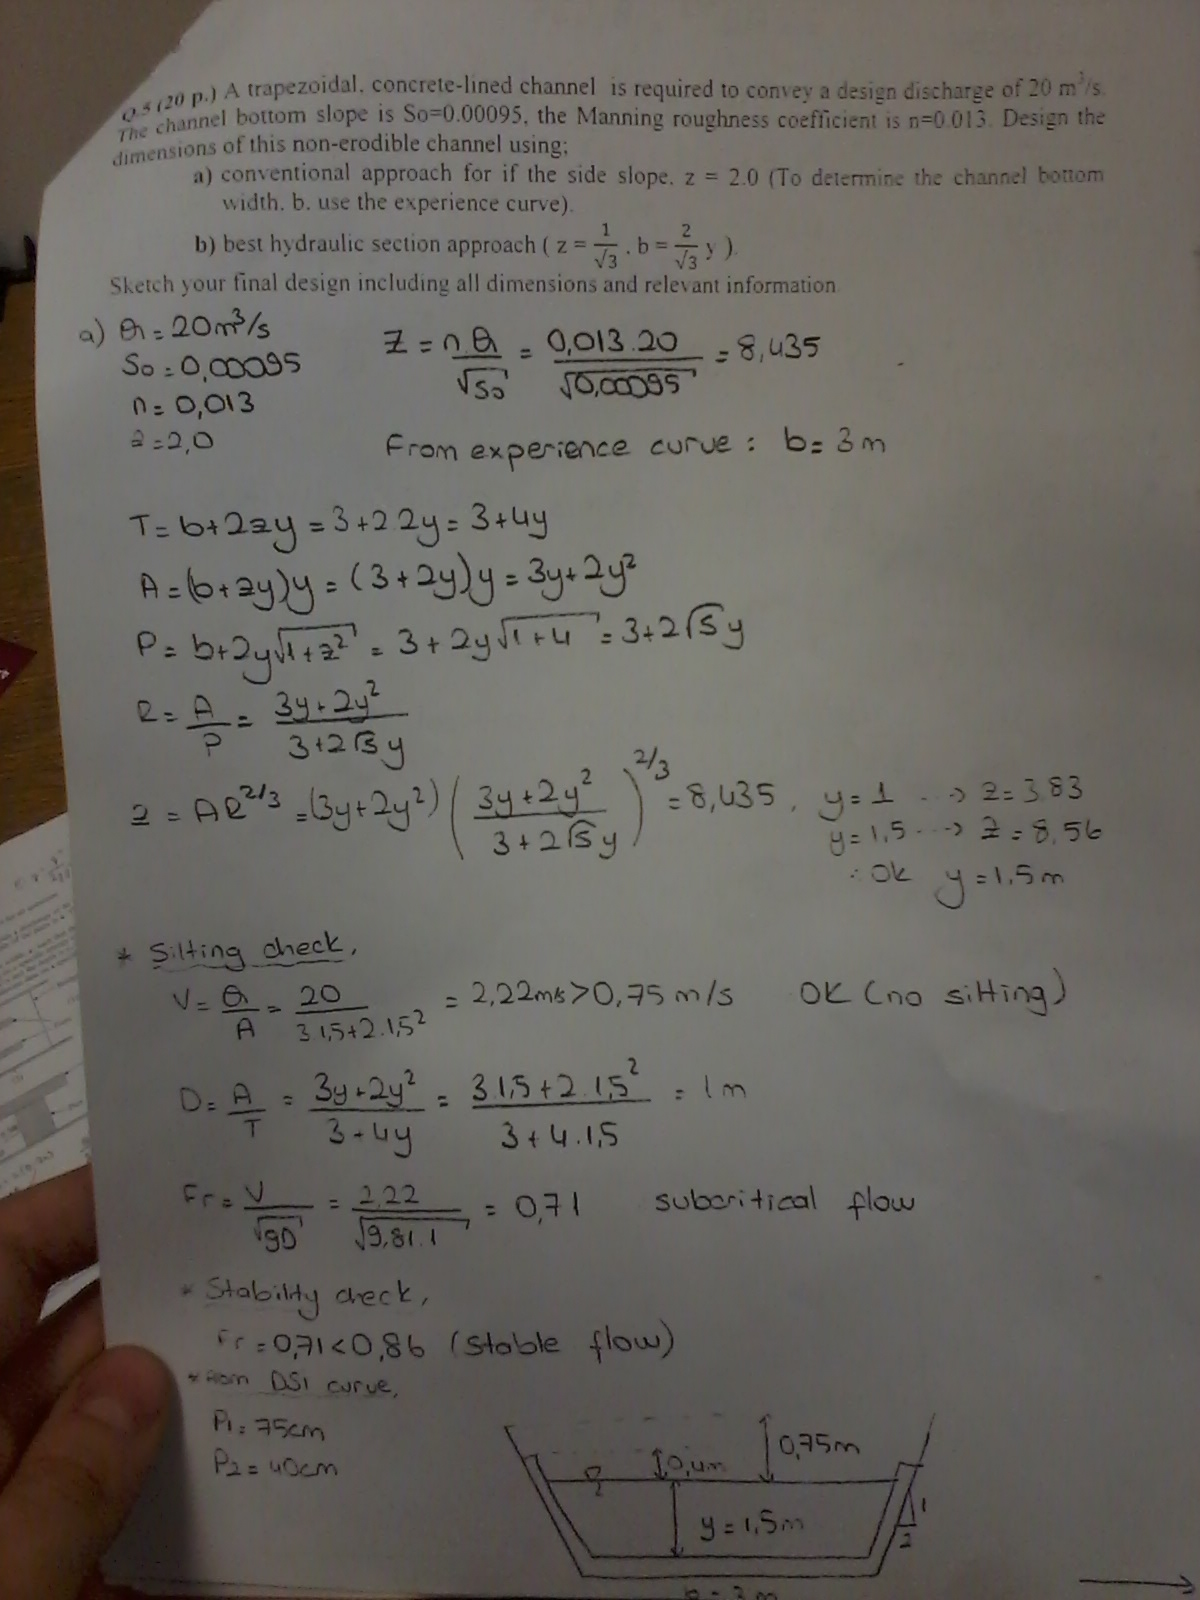 Q.5 (20 p.) A trapezoidal, concrete-lined channel is required to convey a design discharge of 20 m³/s.
The channel bottom slope is So=0.00095, the Manning roughness coefficient is n=0.013. Design the
dimensions of this non-erodible channel using;
a) conventional approach for if the side slope, z = 2.0 (To determine the channel bottom
width, b, use the experience curve).
b) best hydraulic section approach ( z = 1/√3 , b = 2/√3 y ).
Sketch your final design including all dimensions and relevant information
a) Q = 20m³/s
S0 = 0,00095
n = 0,013
z = 2,0
Z = n.Q/√S0 = 0,013.20/√0,00095 = 8,435
From experience curve : b = 3 m
T = b+2zy = 3+2.2y = 3+4y
A = (b+zy)y = (3+2y)y = 3y+2y²
P = b+2y√1+z² = 3+2y√1+4 = 3+2√5y
R = A/P = 3y+2y²/3+2√5y
Z = AR^2/3 = (3y+2y²) (3y+2y²/3+2√5y)^2/3 = 8,435,
y = 1 --> Z = 3.83
y = 1,5 ---> Z = 8,56
∴ OK y = 1,5m
* Silting check,
V = Q/A = 20/3.1,5+2.1,5² = 2,22m/s > 0,75 m/s OK (no silting)
D = A/T = 3y+2y²/3+4y = 3.1,5+2.1,5²/3+4.1,5 = 1m
Fr = V/√gD = 2,22/√9,81.1 = 0,71 subcritical flow
* Stability check,
Fr = 0,71 < 0,86 (stable flow)
* From DSI curve,
P1 = 75cm
P2 = 40cm
0,75m
0,4m
y = 1,5m
1
2
b = 3 m